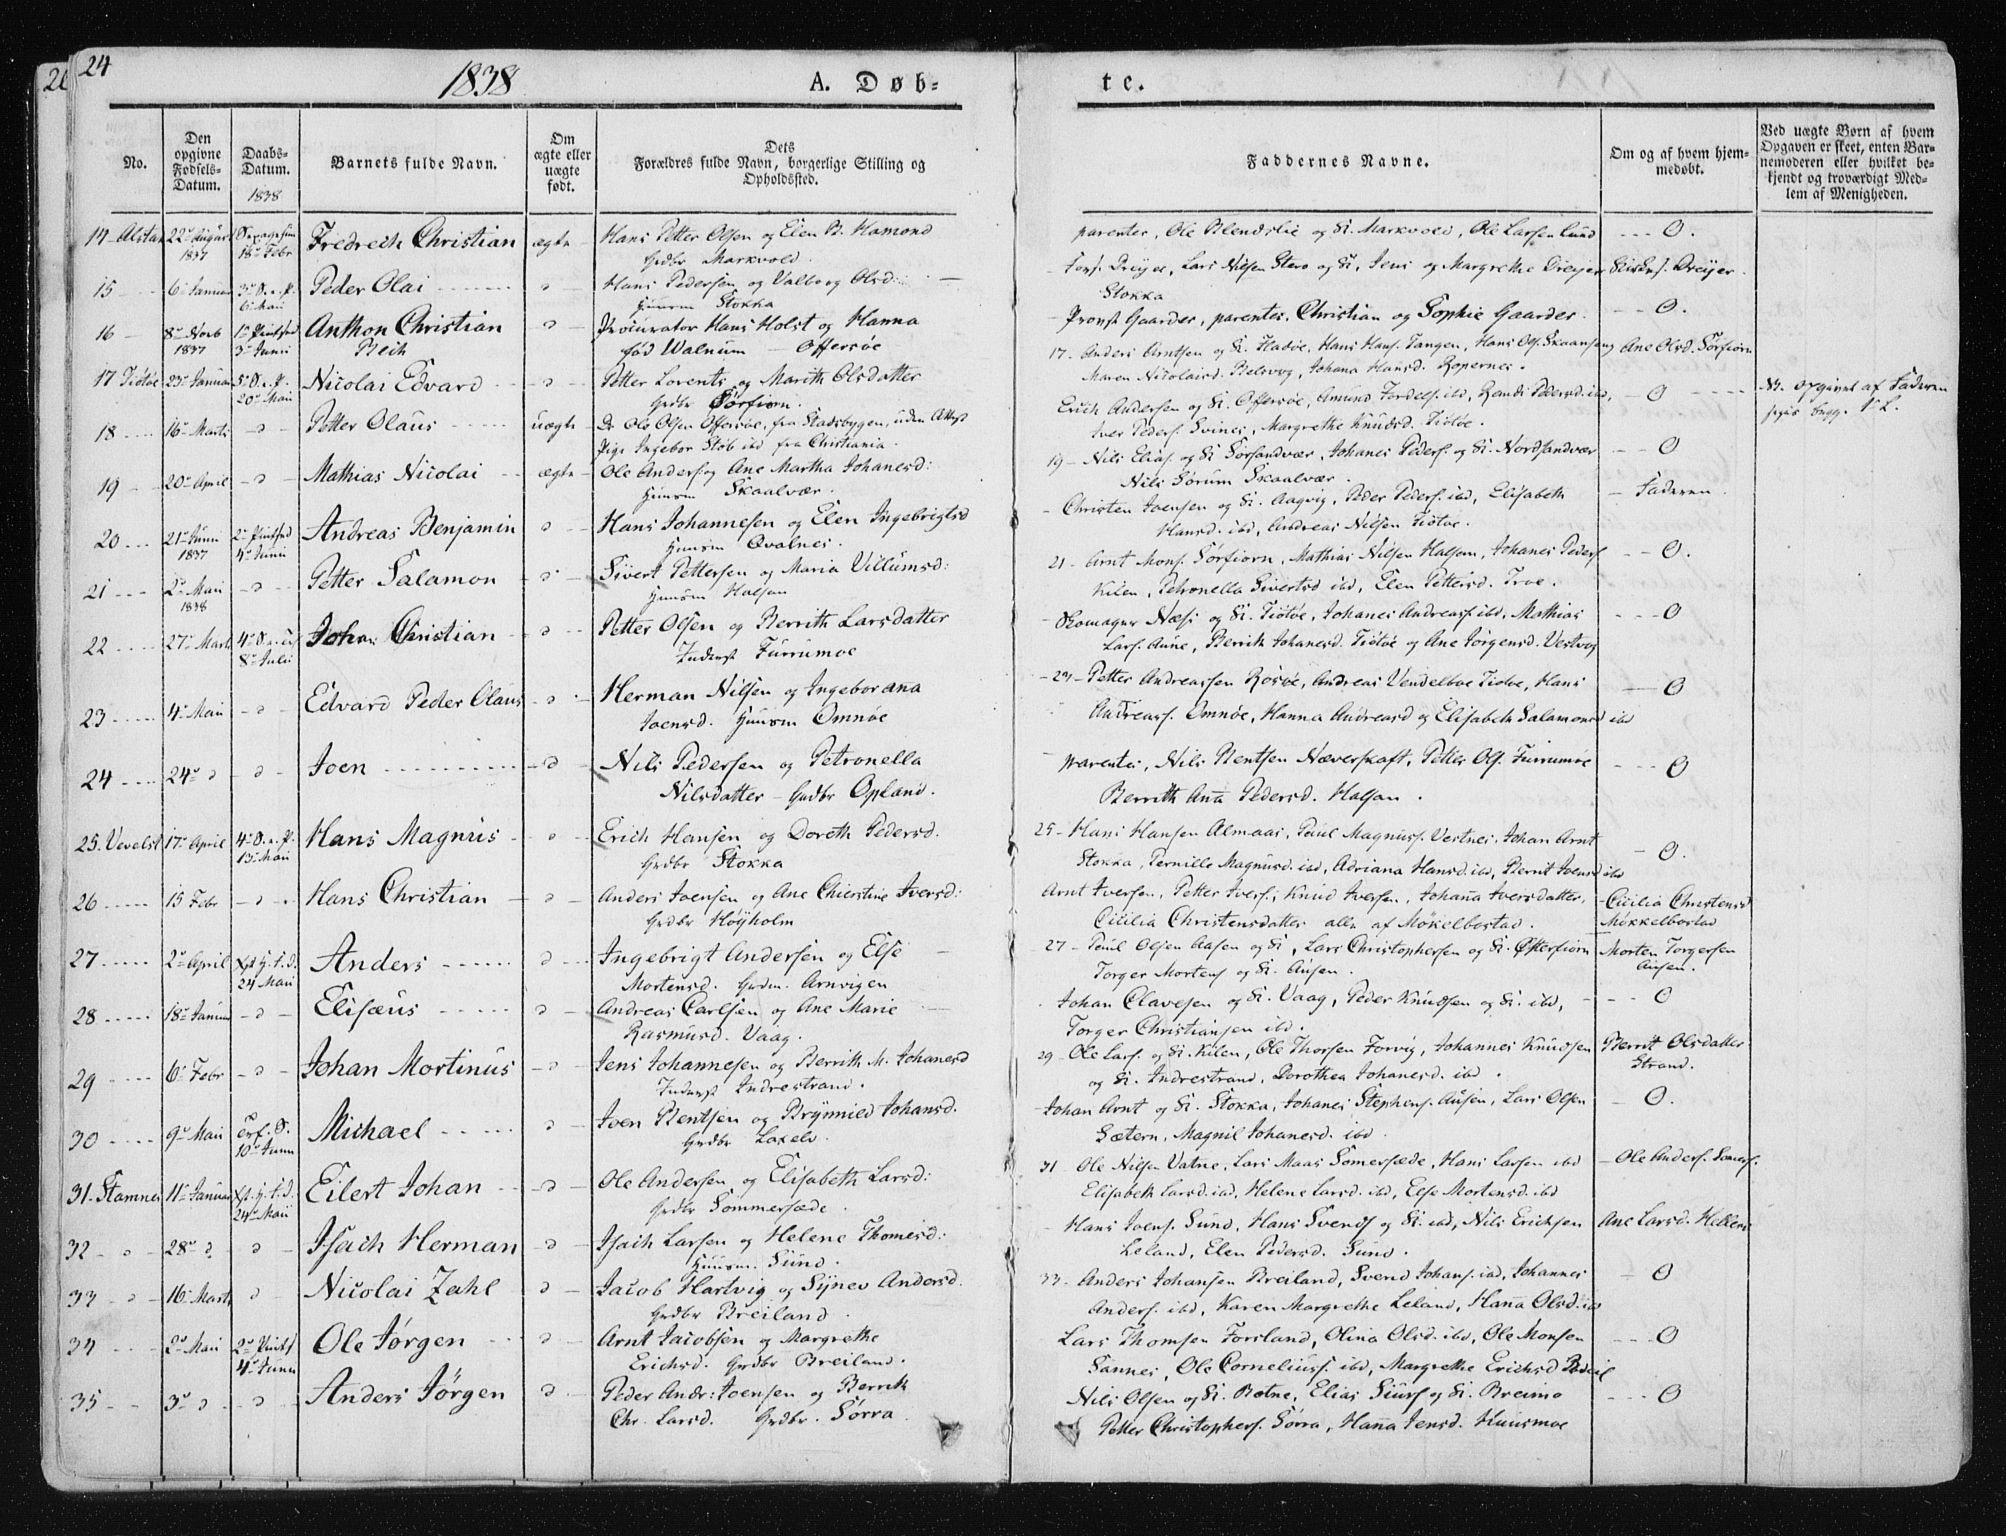 24
1838
A. Døb-
te.
No.
Den opgivne Fødsels-Datum.
Daabs-Datum.
1838
Barnets fulde Navn.
Om ægte eller uægte født.
Dets Forældres fulde Navn, borgerlige Stilling og Opholdssted.
Faddernes Navne.
Om og af hvem hjemmedøbt.
Ved uægte Børn af hvem Opgaven er skeet, enten Barnemoderen eller hvilket bekjendt og troværdigt Medlem af Menigheden.
14 22 1837 18 Febr Fredrech Christian ægte Hans Petter Olsen og Elen B. Hamond
Grdbr Markvold.
parentes, Ole og Markvold, Ole Larsen Lund O.
15 6 Januar 3 S. e. P. 6 Mai Peder Olai Hans Pedersen og Valborg Olsd:
Huusm Stokka
Dreyer, Lars Nilsen Stero og , Jens og Margrethe Dreyer
Stokka
16 8 Novb 1837 3 Junii Anthon Christian Reih Procurator Hans Holst og Hanna
fød Walnum Offersøe
Provst Gaarder, parentes, Christian og Sophie Gaarder. O.
17 Tiøtøe 23 Januar 5 S. e. P. 20 Mai Nicolai Edvard Petter Lorents og Marith Olsdatter
Grdbr Sørfiorn.
17 Anders Arntsen og , Hans Hans. Tangen, Hans Ols. Ane Olsd. Sørfiorn
Maren Nicolaisd. Belsvog, Johana Hansd. Ropernes.
18 16 Marts Petter Olaus uægte Ole Olsen Offersøe, fra Stadsbygen, uden Attest
Pige Ingebor Stob ibd fra Christiania.
Erich Andersen og Offersøe, Amund ibd, Randi Pedersd. ibd, O Nb. opgivet af Faderen
Iver Peders. Svines, Margrethe Knudsd. Tiøtøe.
19 20 April Mathias Nicolai ægte Ole Anders. og Ane Martha Johanesd:
Huusm Skaalvær.
19 Nils Elias. og Sørsandvær, Johanes Peders. og Nordsandvær O
Nils Sørum Skaalvær.
20 21 Juni 1837 4 Junii Andreas Benjamin Hans Johannesen og Elen Ingebrigtsd
Huusm Qvalnes.
Christen Joensen og Aagvig, Peder Peders. ibd, Elisabeth Faderen
Hansd. ibd, Andreas Nilsen Tiøtøe.
21 2 Mai 1838 Petter Salamon Sivert Pettersen og Maria Villumsd:
Huusm Halsan
21 Arnt Mons. Sørfiorn, Mathias Nilsen Halsan, Johanes Peders O.
Kilen, Petronella Sivertsd ibd, Elen Pettersd. Troe.
22 27 Marts 8 Julii Johan Christian Petter Olsen og Berrith Larsdatter
Inderst Furrumoe
Næss og Tiøtøe, Johanes Andreas. ibd, Mathias O
Lars. Aune, Berrith Johanesd. Tiøtøe og Ane Jørgensd. Vestvog
23 4 Mai Edvard Peder Olaus Herman Nilsen og Ingeborana
Joensd. Huusm Omnøe
23 Petter Andreassen Rosøe, Andreas Vendelboe Tiøtøe, Hans O
Andreas. Omnøe, Hanna Andreasd og Elisabeth Salamonsd ibd
24 24 Joen Nils Pedersen og Petronella
Nilsdatter Grdbr Opland.
parentes, Nils Bentsen Næverskaft, Petter Ols. Furrumoe O
Berrith Ana Pedersd. Halsan.
25. Vevelst 17 April 4 S. e. P. 13 Mai Hans Magnus Erich Hansen og Doreth Pedersd.
Grdbr Stokka
25 Hans Hansen Almaas, Paul Magnuss. Vestnes, Johan Arnt O.
Stokka, Pernille Magnusd. ibd, Adriana Hansd. ibd, Bernt Joensd ibd
26 15 Febr Hans Christian Anders Joensen og Ane Chierstine Iversd:
Grdbr Høyholm
Arnt Iversen, Petter Ivers., Knud Iversen, Johana Iversdatter, Cicilia Christensd
Cicilia Christensdatter alle af Møkelbostad. Møkkelbostad
27 2 April 24 Mai Anders Ingebrigt Andersen og Else
Mortensd. Grdm. Arnvigen
27 Paul Olsen Aasen og , Lars Christophersen og Østerfiorn Morten Torgersen
Torger Mortens og Ausen. Ausen.
28 18 Januar Elisæus Andreas Carlsen og Ane Marie
Rasmusd. Vaag.
Johan Olavesen og Vaag, Peder Knudsen og ibd, O
Torger Christiansen ibd.
29 6 Febr Johan Mortinus Jens Johannesen og Berrith M. Johanesd
Inderst Indrestrand.
29 Ole Lars. og Kilen, Ole Thorsen Forvig, Johannes Knudsen Berrit Olsdatter
og Indrestrand, Dorothea Johanesd. ibd. Strand.
30 9 Mai 10 Junii Michael Joen Bentsen og Brynnild Johansd.
Grdbr Laxelv.
Johan Arnt og Stokka, Johanes Stephens. Ausen, Lars Olsen O.
Sætern, Magnil Johanesd. ibd.
31. Stamnes 11 Januar 24 Mai Eilert Johan Ole Andersen og Elisabeth Larsd:
Grdbr Sommersæde.
31 Ole Nilsen Vatne, Lars Maas Somersæde, Hans Larsen ibd Ole Anders. Somers.
Elisabeth Larsd. ibd, Helene Larsd. ibd, Else Mortensd. ibd
32 28 Isach Herman Isach Larsen og Helene Thomesd:
Huusm. Sund.
Hans Joens. Sund, Hans Svends og ibd, Nils Erichsen Ane Larsd.
Leland, Elen Pedersd. Sund.
33 16 Marts Nicolai Zahl Jacob Hartvig og Synev Andersd.
Grdbr Breiland
33 Anders Johansen Breiland, Svend Johans. ibd, Johannes O
Anders. ibd, Karen Margrethe Leland, Hana Olsd. ibd
34 2 Mai 4 Junii Ole Jørgen Arnt Jacobsen og Margrethe
Erichsd. Grdbr Breiland.
Lars Thomsen Forsland, Olina Olsd. ibd, Ole Monsen O
Sannes, Ole Corneliuss. ibd, Margrethe Erichsd Breil
35 3 Anders Jørgen Peder Andr: Joensen og Berrith
Chr. Larsd. Grdbr. Sørra
Nils Olsen og Botne, Elias og Breimo O
Petter Christophers. Sørra, Hana Jensd. Huusmoe